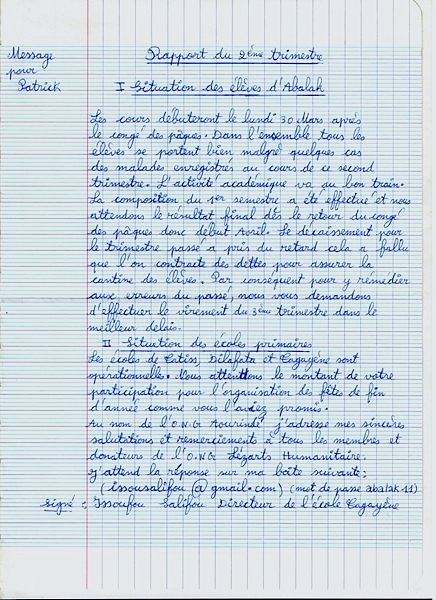 Message
pour
Patrick
Rapport du 2ème trimestre
I Situation des élèves d'Abalak
Les cours débuteront le lundi 30 Mars après
le congé des pâques. Dans l'ensemble tous les
élèves se portent bien malgré quelques cas
des malades enregistrés au cours de ce second
trimestre. L'activité académique va au bon train.
La composition du 1er semestre a été effectué et nous
attendons le résultat final dès le retour du congé
des pâques donc début Avril. Le décaissement pour
le trimestre passé a pris du retard cela a fallu
que l'on contracte des dettes pour assurer la
cantine des élèves. Par conséquent pour y rémédier
aux erreurs du passé, nous vous demandons
d'effectuer le virement du 3ème trimestre dans le
meilleur delais.
II Situation des écoles primaires
Les écoles de Dilafata et Cagayène sont
opérationnelles. Nous attenttons le montant de votre
participation pour l'organisation des fêtes de fin
d'année comme vous l'aviez promis.
Au nom de l'O.N.G j'adresse mes sincères
salutations et remerciements à tous les membres et
donateurs de l'O.N.G Lézarts Humanitaire.
J'attend la réponse sur ma boîte suivante :
(issousalifou @ gmail.com) (mot de passe abalak 11)
Signé : Issoufou Salifou Directeur de l'école Cagayène